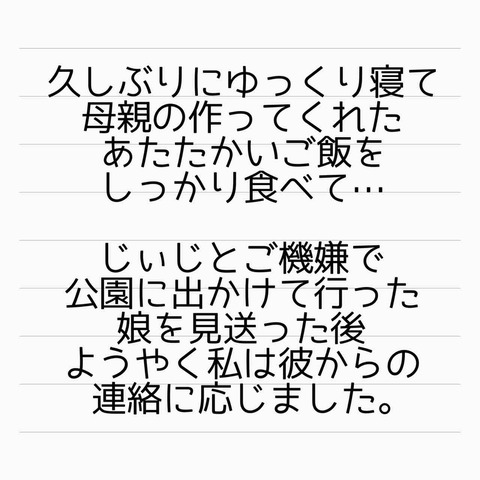 久しぶりにゆっくり寝て
母親の作ってくれた
あたたかいご飯を
しっかり食べて…
じぃじとご機嫌で
公園に出かけて行った
娘を見送った後
ようやく私は彼からの
連絡に応じました。